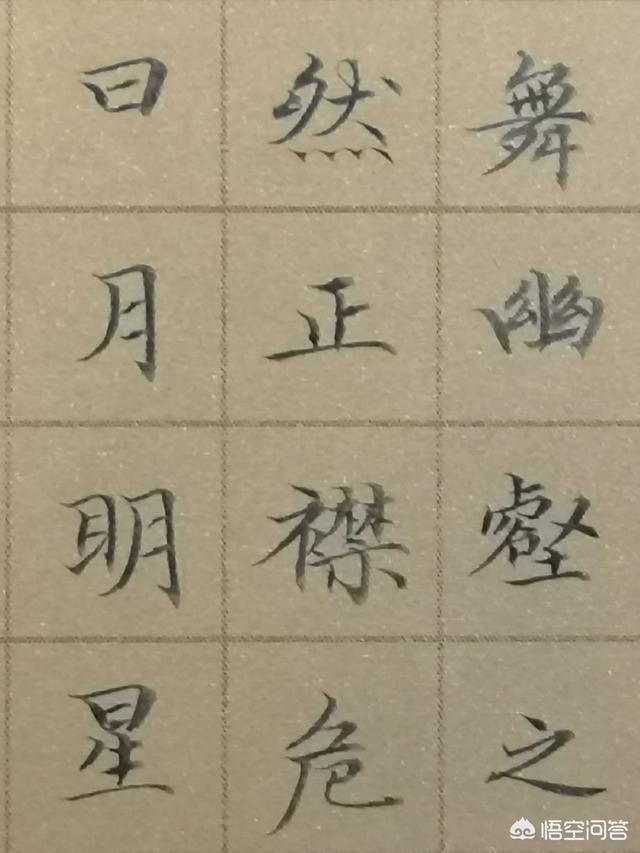 舞幽壑之
然正襟危
曰月明星
悟空问答